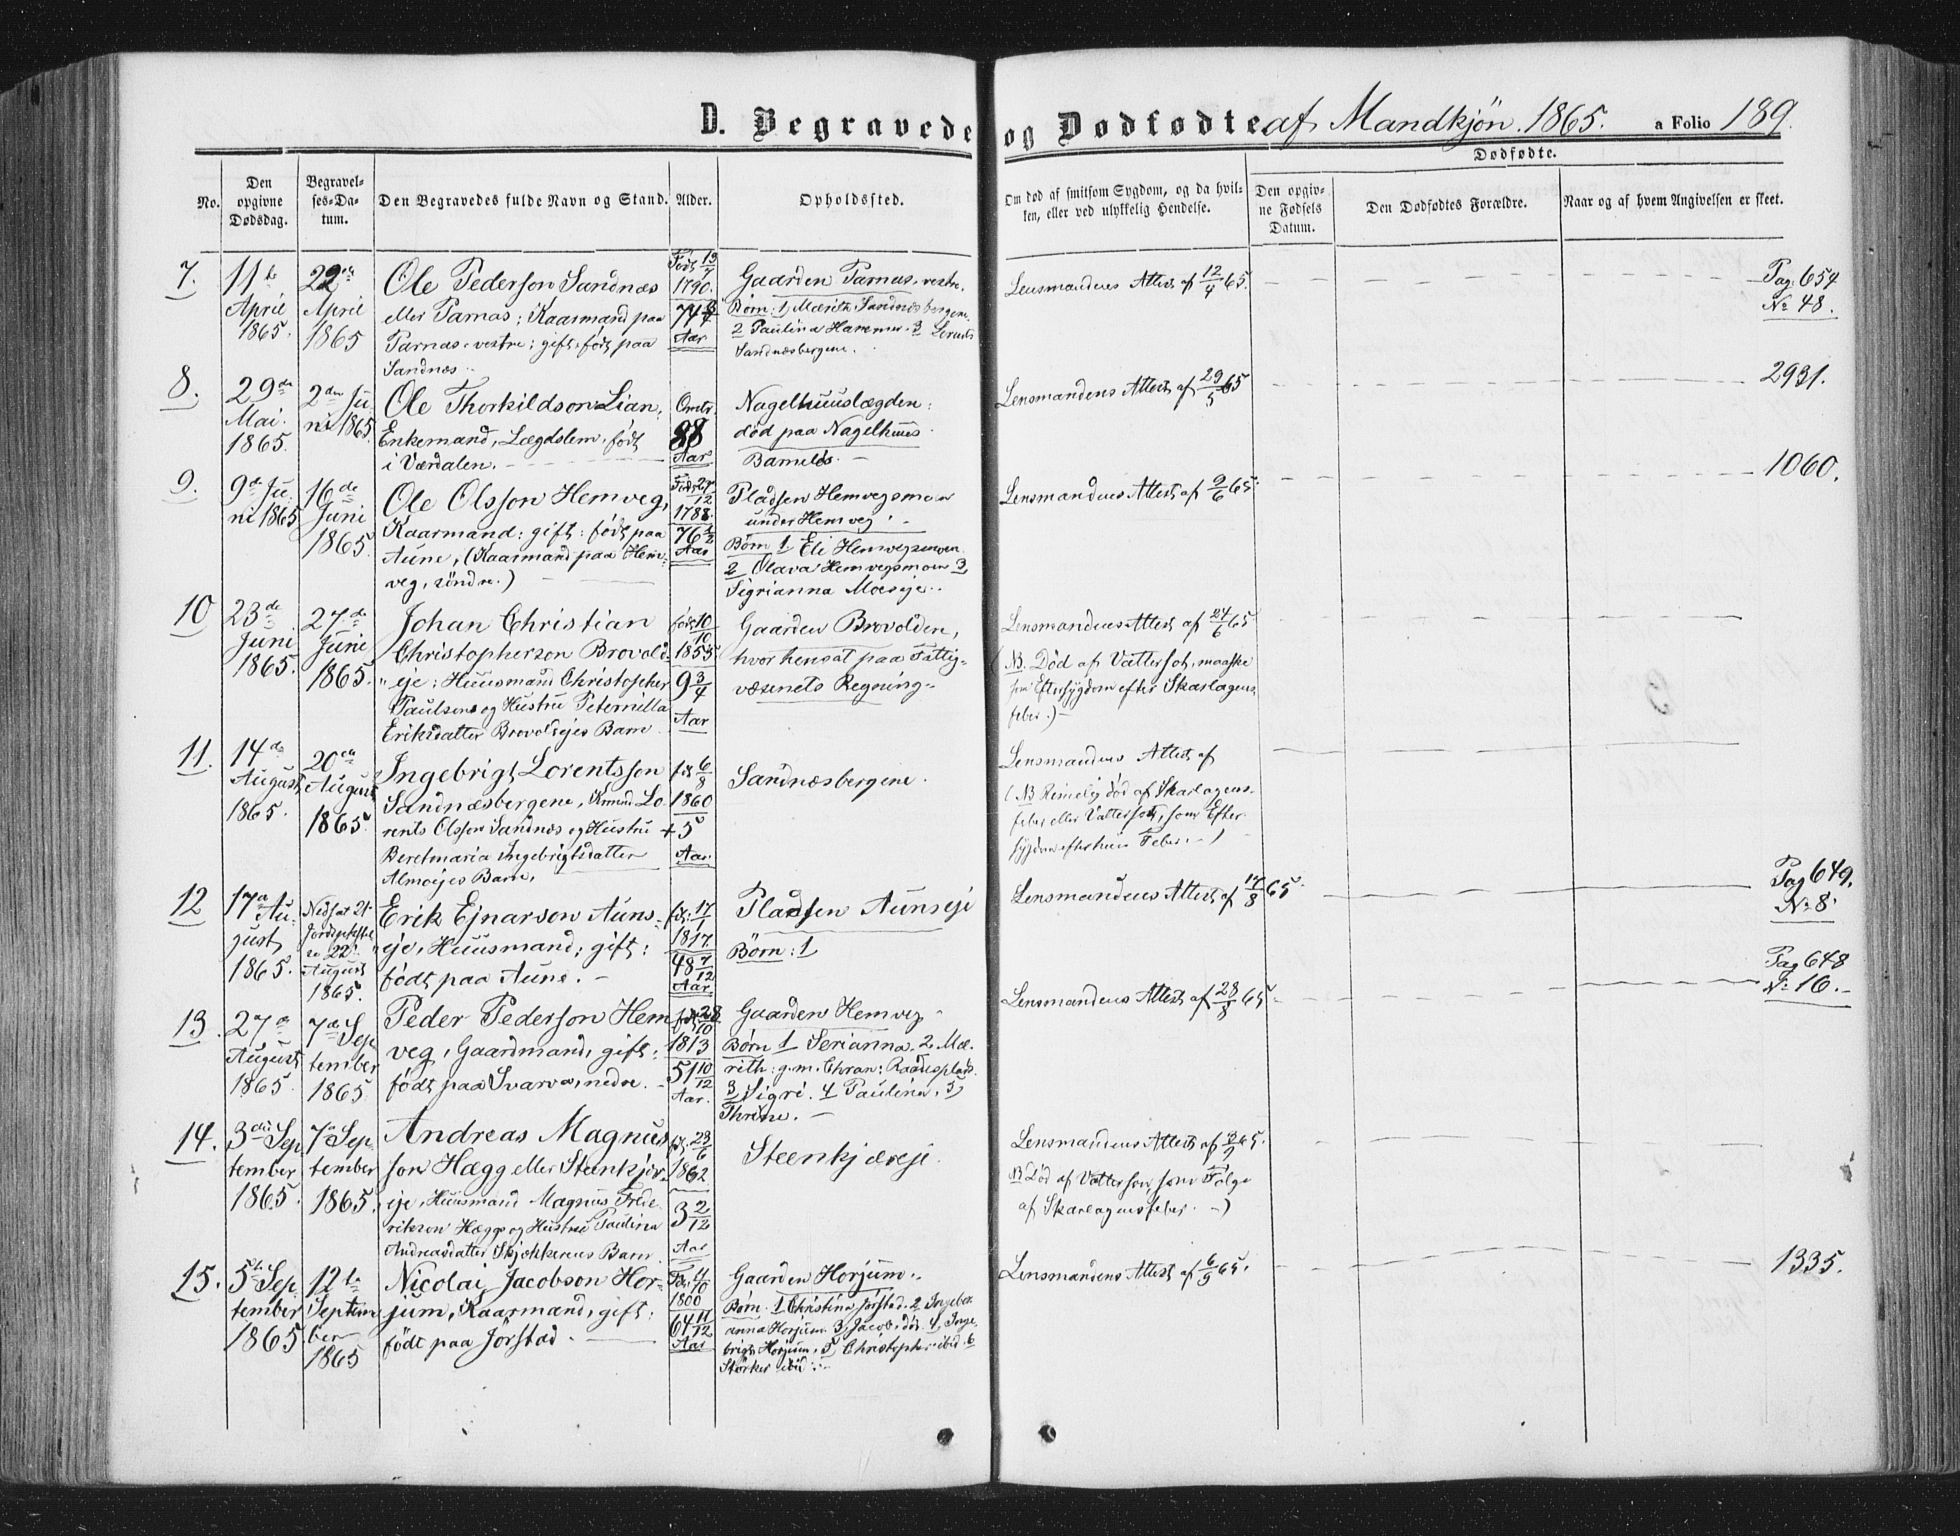 D. Begravede og Dødfødte af Mandkjön. 1865. a Folio 189.
Dødfødte.
No.
Den opgivne Dødsdag.
Begravel-
ses-Da-
tum.
Den Begravedes fulde Navn og Stand.
Alder.
Opholdssted.
Om død af smitsom Sygdom, og da hvil-
ken, eller ved ulykkelig Hendelse.
Den opgiv-
ne Fødsels
Datum.
Den Dødfødtes Forældre.
Naar og af hvem Angivelsen er skeet.
7.
11te
April
1865.
22de
April
1865
Ole Pederson Sandnæs
eller Parnas; Kaarmand paa
Parnas, vestre; gift, født paa
Sandnæs.
Født 19/7
1790.
74 3/4
Aar
Gaarden Parnas, vestre.
Børn: 1, Mærith Sandnæsbergene.
2 Paulina Hammer. 3
Sandnæsbergene.
Lensmandens Attest af 12/4 65.
Pag. 654
No 48.
8.
29de
Mai.
1865.
2den Ju
ni 1865.
Ole Thorkildson Lian,
Enkemand, Lægdslem, født
i Værdalen.
Omtr.
88
Aar
Nagelhuuslægden:
død paa Nagelhuus.
Barnløs.
Lensmandens Attest af 29/5 65
2931.
9.
9de Ju
ni 1865
16de
Juni
1865.
Ole Olsson Hemveg,
Kaarmand: gift: født paa
Aune, (Kaarmand paa Hem-
veg, søndre.)
Født 24/12
1788.
76 1/2
Aar
Pladsen Hemvegsmoen
under Hemveg.
Børn 1 Eli Hemvegsmoen
2 Olava Hemvegsmoen 3
Sigrianna Moesije.
Lensmandens Attest af 9/6 65.
1060.
10
23de
Juni
1865.
27de
Juni
1865.
Johan Christian
Christopherson Brovold-
eje; Huusmand Christopher
Paulsons og Hustru Peternilla
Eriksdatter Brovoldsejes Barn.
født 10/10
1855
9 3/4
Aar
Gaarden Brovolden,
hvor hensat paa Fattig-
væsenets Regning.
Lensmandens Attest af 24/6 65
(NB. Død af Vattersot, maaske
som Eftersygdom efter Skarlagens-
feber.)
11.
14de
August
1865.
20de
August
1865.
Ingebrigt Lorentsson
Sandnæsbergene, Lo-
rents Olsson Sandnæs og Hustru
Beretmaria Ingebrigtsdatter
Almoejes Barn.
født 6/8
1860
+5
Aar.
Sandnæsbergene.
Lensmandens Attest af
(NB Rimelig død af Skarlagens-
feber eller Vattersot, som Efter-
sygdom efter Feber.)
12
17de Au-
gust
1865.
Nedsat 21.
Jordpaakaste
22.
August
1865.
Erik Ejnarson Auns-
eje, Huusmand; gift:
født paa Aune.
født 17/1
1817.
48 7/12
Aar.
Pladsen Aunseje
Børn: 1
Lensmandens Attest af 17/8 65.
Pag 649.
No 8.
13.
27de
August
1865.
7de Sep
tember
1865
Peder Pederson Hem
veg, Gaardmand, gift:
født paa Svarva, nedre.
født 28/10
1813
51 10/12
Aar.
Gaarden Hemveg
Børn 1 Serianna. 2 Mæ-
rith: g. m. Chran: Raadesplads.
3 Sigri. 4 Paulina. 5
Thrine.
Lensmandens Attest af 28/8 65
Pag 648
No 16.
14.
3die Sep
tember
1865.
7de Sep
tember
1865.
Andreas Magnus
son Hægg eller Steenkjær-
eje, Huusmand Magnus Frede
rikson Hæggs og Hustru Paulina
Andreasdatter Skjækkerens Barn
født 23/6
1862
3 2/12
Aar
Steenkjæreje.
Lensmandens Attest af 3/9 65.
NB Død af Vattersot, som Følge
af Skarlagensfeber.)
15.
5te Sep
tember
1865
12te
Septem
ber
1865
Nicolai Jacobson Hor-
jum, Kaarmand, gift:
født paa Jørstad.
Fdt. 11/10
1800
64 11/12
Aar
Gaarden Horjum.
Børn. 1 Christina Jørstad. 2 Ingeber
anna Horjum. 3, Jacob, død. 4, Inge-
brigt Horjum, 5, Christopher ibid. 6
Størker ibid.
Lensmandens Attest af 6/9 65.
1335.